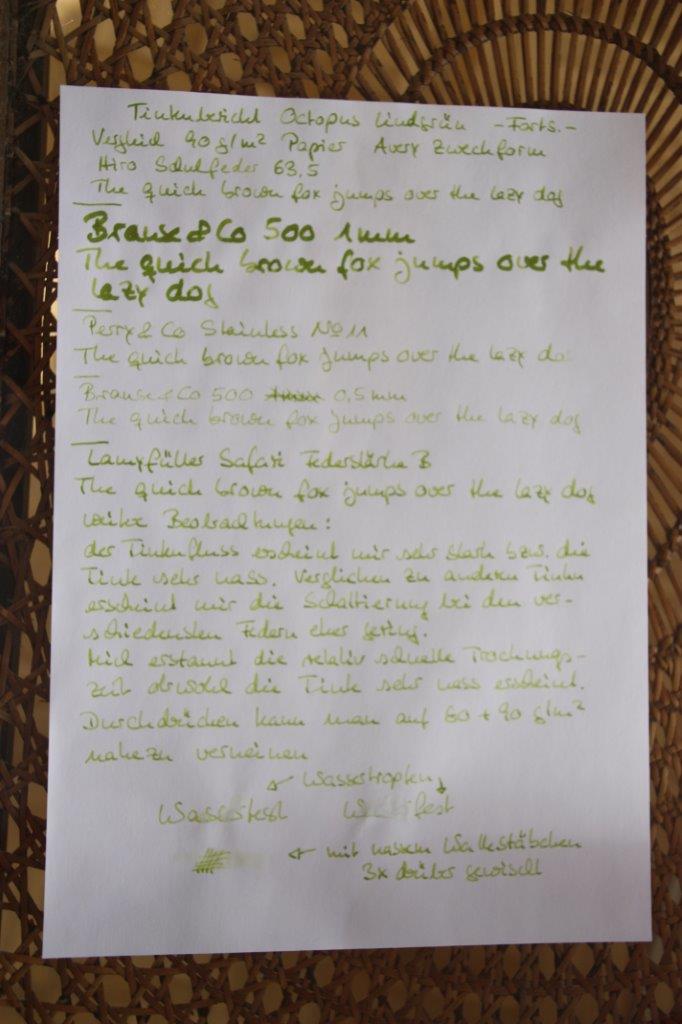 Tintenbericht Octopus Lindgrün - Forts. -
Vergleich 90 g/m² Papier Avery Zweckform
Hiro Schulfeder 63,5
The quick brown fox jumps over the lazy dog
Brause & Co 500 1mm
The quick brown fox jumps over the
lazy dog
Perry & Co Stainless No 11
The quick brown fox jumps over the lazy do
Brause & Co 500 1mm 0,5mm
The quick brown fox jumps over the lazy dog
Lamyfüller Safari Federstärke B
The quick brown fox jumps over the lazy dog
weitere Beobachtungen:
der Tintenfluss erscheint mir sehr stark bzw. die
Tinte sehr nass. Verglichen zu anderen Tinten
erscheint mir die Schattierung bei den ver-
schiedensten Federn eher gering.
Mich erstaunt die relativ schnelle Trocknungs-
zeit obwohl die Tinte sehr nass erscheint.
Durchdrücken kann man auf 60 + 90 g/m²
nahezu verneinen
Wassertropfen
Wasserfest Wasserfest
← mit nassem Wattestäbchen
3x drüber gewischt